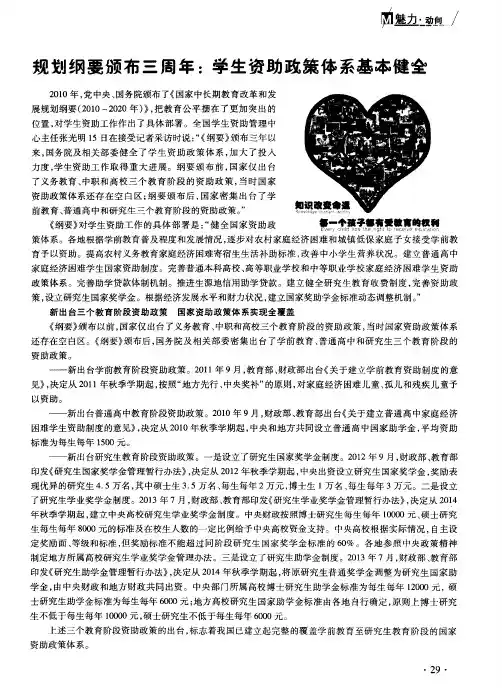 魅力·动向
规划纲要颁布三周年：学生资助政策体系基本健全
2010年，党中央、国务院颁布了《国家中长期教育改革和发
展规划纲要(2010－2020年)》，把教育公平摆在了更加突出的
位置，对学生资助工作作出了具体部署。全国学生资助管理中
心主任张光明15日在接受记者采访时说：“《纲要》颁布三年以
来，国务院及相关部委健全了学生资助政策体系，加大了投入
力度，学生资助工作取得重大进展。纲要颁布前，国家仅出台
了义务教育、中职和高校三个教育阶段的资助政策，当时国家
资助政策体系还存在空白区；纲要颁布后，国家密集出台了学
前教育、普通高中和研究生三个教育阶段的资助政策。”
知识改变命运
每一个孩子都有受教育的权利
Every child has the right to receive education
《纲要》对学生资助工作的具体部署是：“健全国家资助政
策体系。各地根据学前教育普及程度和发展情况，逐步对农村家庭经济困难和城镇低保家庭子女接受学前教
育予以资助。提高农村义务教育家庭经济困难寄宿生生活补助标准，改善中小学生营养状况。建立普通高中
家庭经济困难学生国家资助制度。完善普通本科高校、高等职业学校和中等职业学校家庭经济困难学生资助
政策体系。完善助学贷款体制机制。推进生源地信用助学贷款。建立健全研究生教育收费制度，完善资助政
策，设立研究生国家奖学金。根据经济发展水平和财力状况，建立国家奖助学金标准动态调整机制。”
新出台三个教育阶段资助政策　国家资助政策体系实现全覆盖
《纲要》颁布以前，国家仅出台了义务教育、中职和高校三个教育阶段的资助政策，当时国家资助政策体系
还存在空白区。《纲要》颁布后，国务院及相关部委密集出台了学前教育、普通高中和研究生三个教育阶段的
资助政策。
——新出台学前教育阶段资助政策。2011年9月，教育部、财政部出台《关于建立学前教育资助制度的意
见》，决定从2011年秋季学期起，按照“地方先行、中央奖补”的原则，对家庭经济困难儿童、孤儿和残疾儿童予
以资助。
——新出台普通高中教育阶段资助政策。2010年9月，财政部、教育部出台《关于建立普通高中家庭经济
困难学生资助制度的意见》，决定从2010年秋季学期起，中央和地方共同设立普通高中国家助学金，平均资助
标准为每生每年1500元。
——新出台研究生教育阶段资助政策。一是设立了研究生国家奖学金制度。2012年9月，财政部、教育部
印发《研究生国家奖学金管理暂行办法》，决定从2012年秋季学期起，中央出资设立研究生国家奖学金，奖励表
现优异的研究生4.5万名，其中硕士生3.5万名、每生每年2万元，博士生1万名、每生每年3万元。二是设立
了研究生学业奖学金制度。2013年7月，财政部、教育部印发《研究生学业奖学金管理暂行办法》，决定从2014
年秋季学期起，建立中央高校研究生学业奖学金制度。中央财政按照博士研究生每生每年10000元、硕士研究
生每生每年8000元的标准及在校生人数的一定比例给予中央高校资金支持。中央高校根据实际情况，自主设
定奖励面、等级和标准，但奖励标准不能超过同阶段研究生国家奖学金标准的60%。各地参照中央政策精神
制定地方所属高校研究生学业奖学金管理办法。三是设立了研究生助学金制度。2013年7月，财政部、教育部
印发《研究生助学金管理暂行办法》，决定从2014年秋季学期起，将原研究生普通奖学金调整为研究生国家助
学金，由中央财政和地方财政共同出资。中央部门所属高校博士研究生助学金标准为每生每年12000元，硕
士研究生助学金标准为每生每年6000元；地方高校研究生国家助学金标准由各地自行确定，原则上博士研究
生不低于每生每年10000元，硕士研究生不低于每生每年6000元。
上述三个教育阶段资助政策的出台，标志着我国已建立起完整的覆盖学前教育至研究生教育阶段的国家
资助政策体系。
·29·